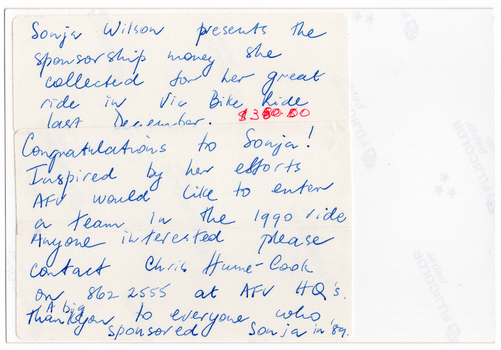 Sonja Wilson presents the
sponsorship money she
collected for her great
ride in Vic Bike Ride
last December. $350.00
Congratulations to Sonja!
Inspired by her efforts
AFV would like to enter
a team in the 1990 ride
Anyone interested please
contact Chris Hume-Cook
on 862 2555 at AFV HQ's.
A big
Thankyou to everyone who
sponsored Sonja in '89.
FUJICOLOR